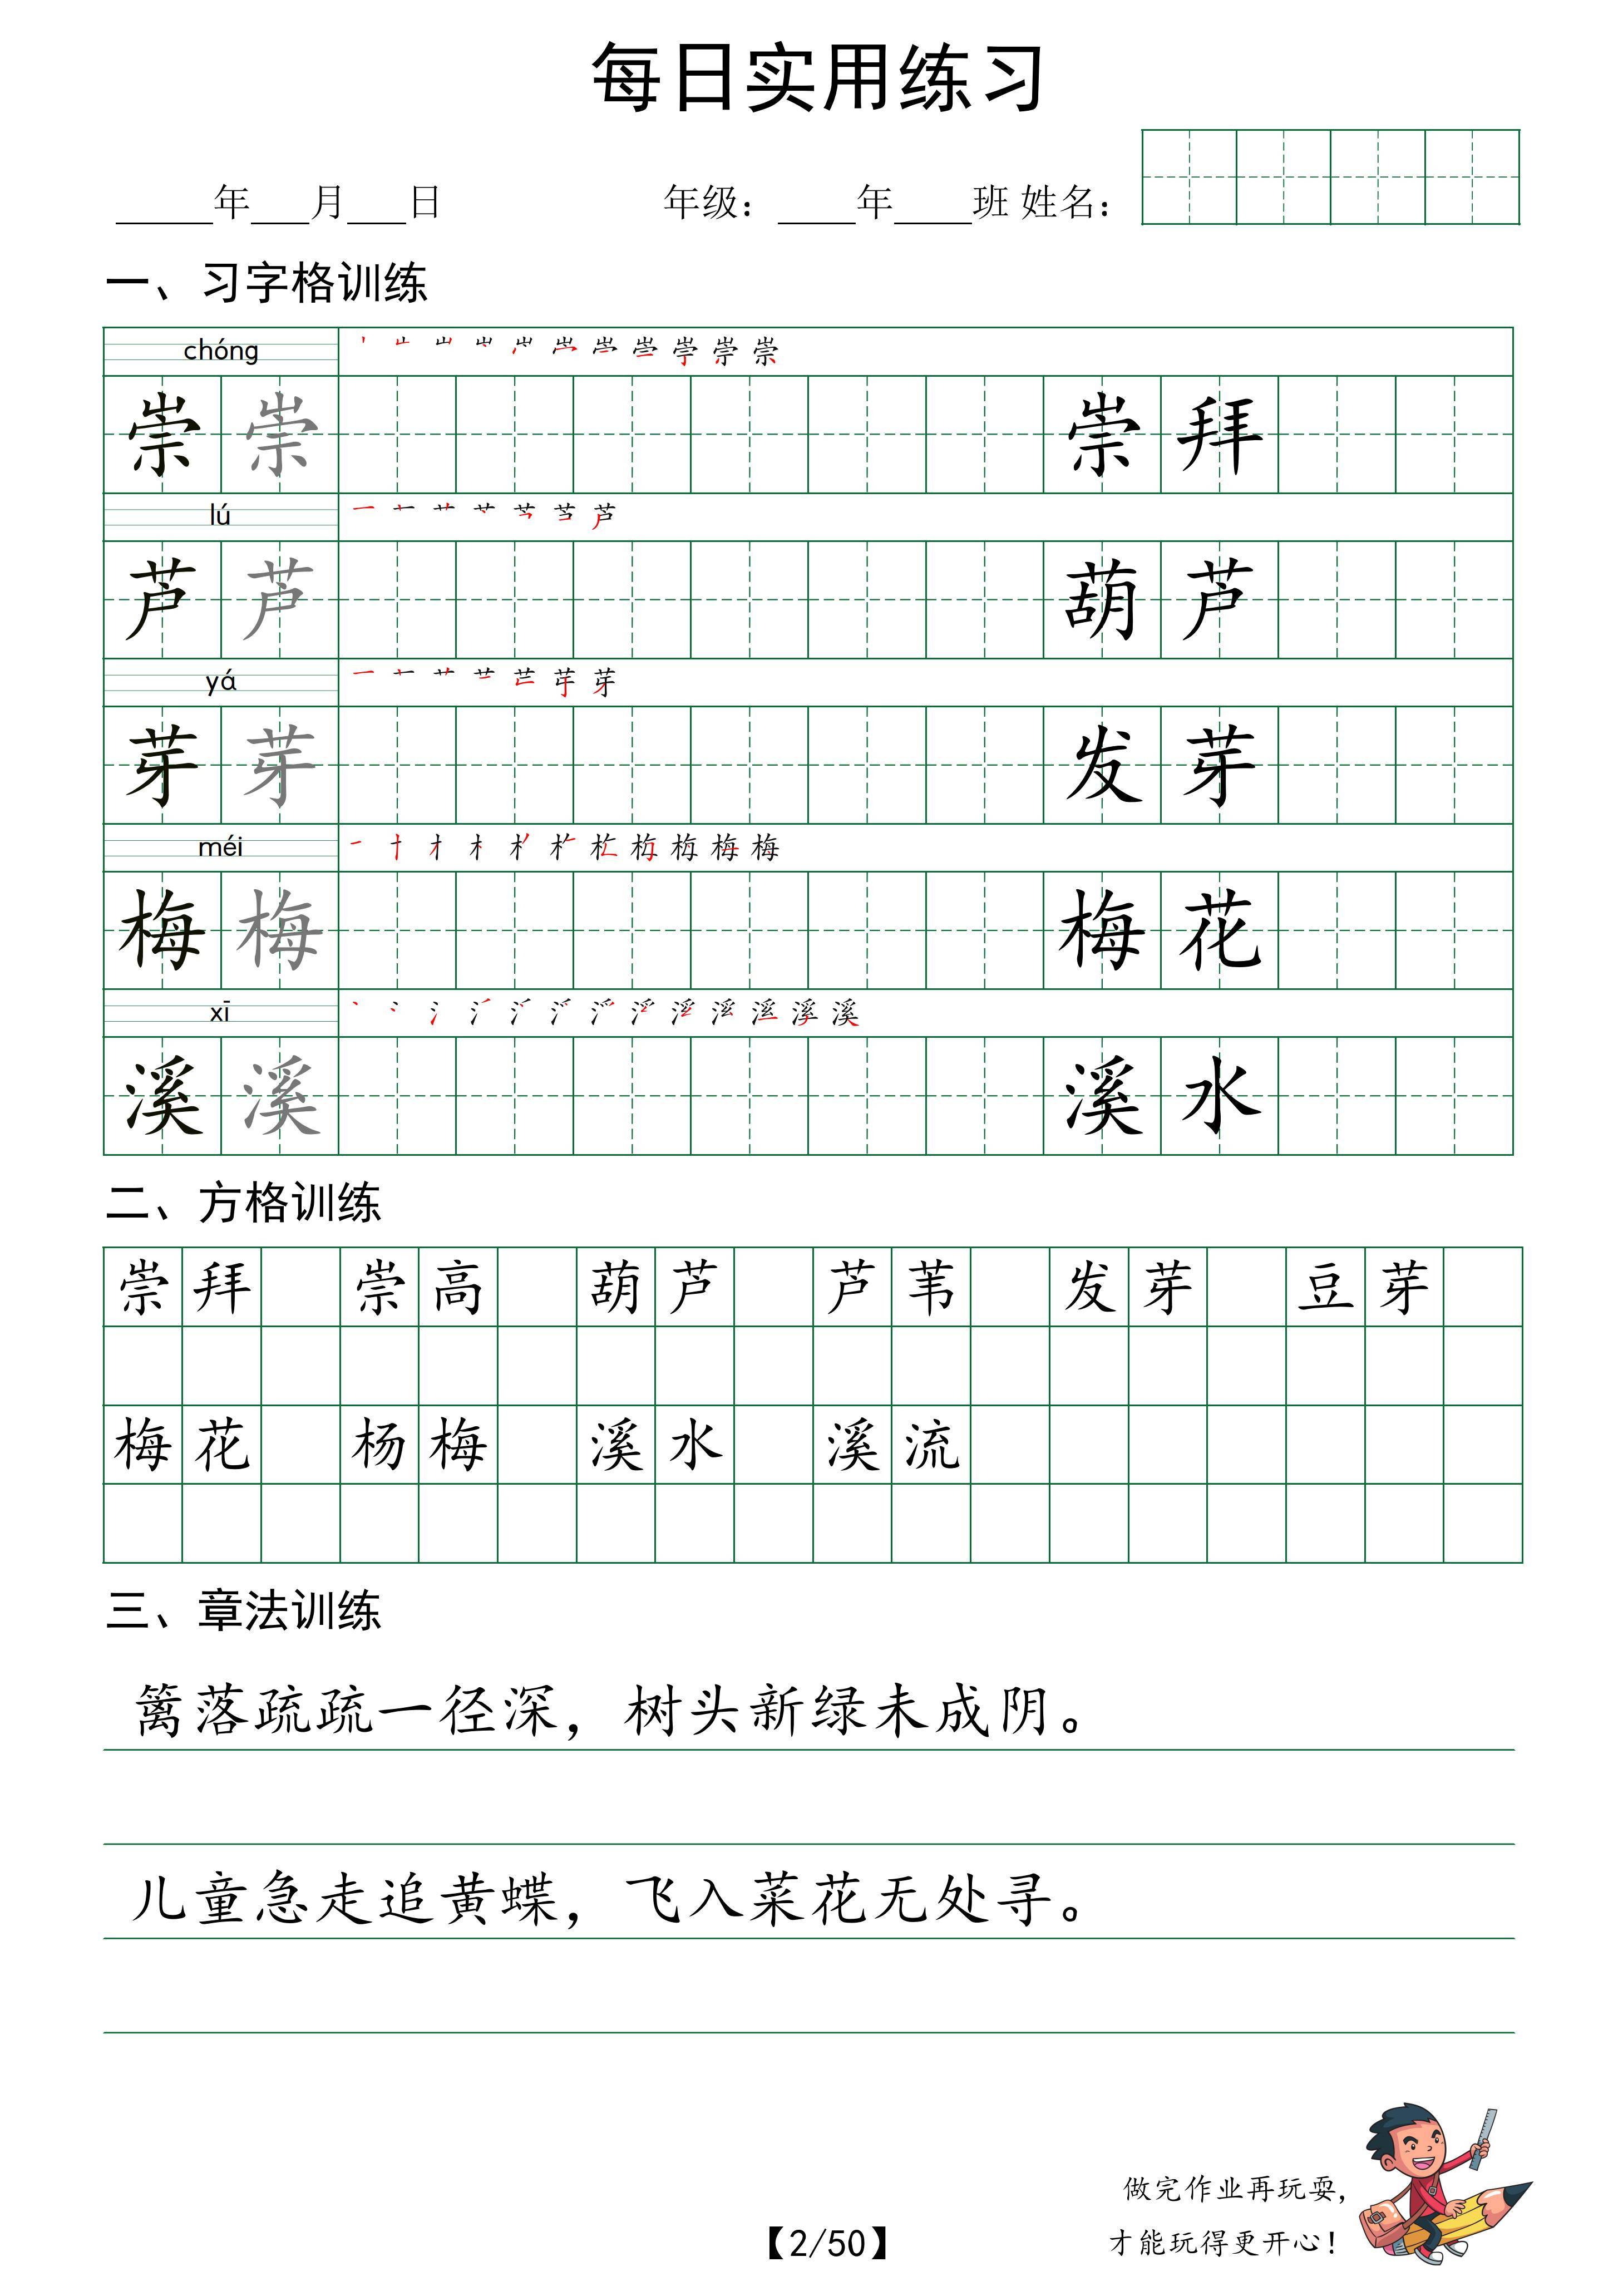 每日实用练习
_____年___月___日 年级：____年____班 姓名：
一、习字格训练
chóng
崇 崇 崇 拜
lú
芦 芦 葫 芦
yá
芽 芽 发 芽
méi
梅 梅 梅 花
xī
溪 溪 溪 水
二、方格训练
崇 拜 崇 高 葫 芦 芦 苇 发 芽 豆 芽
梅 花 杨 梅 溪 水 溪 流
三、章法训练
篱落疏疏一径深，树头新绿未成阴。
儿童急走追黄蝶，飞入菜花无处寻。
做完作业再玩耍，
才能玩得更开心！
【2/50】